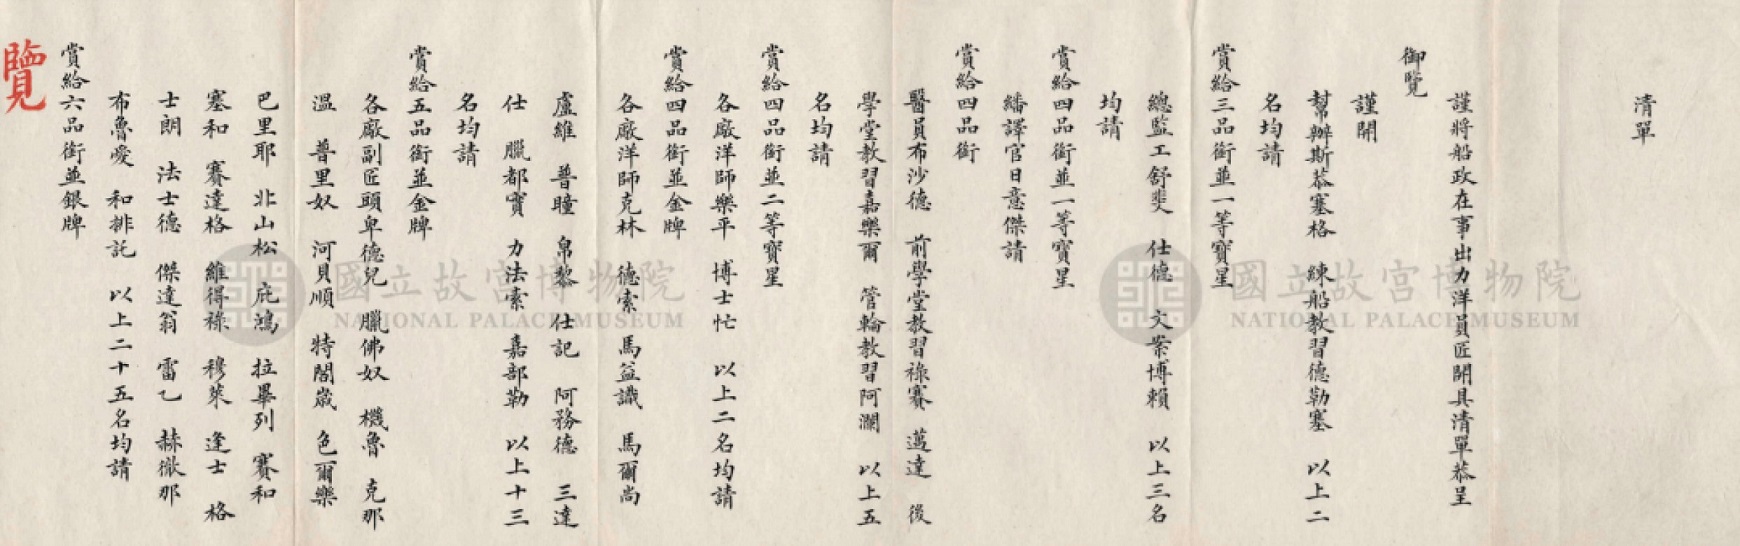 清單
謹將船政在事出力洋員匠開具清單恭呈
御覽
謹開
幫辦斯恭塞格 練船教習德勒塞 以上二
名均請
賞給三品銜並一等寶星
總監工舒斐 仕德 文案博賴 以上三名
均請
賞給四品銜並一等寶星
繙譯官日意傑請
賞給四品銜
醫員布沙德 前學堂教習祿賽 邁達 後
學堂教習嘉樂爾 管輪教習阿瀾 以上五
名均請
賞給四品銜並二等寶星
各廠洋師樂平 博士忙 以上二名均請
賞給四品銜並金牌
各廠洋師克林 德索 馬益識 馬爾尚
盧維 普瞳 帛黎 仕記 阿務德 三達
仕 臘都實 力法索 嘉部勒 以上十三
名均請
賞給五品銜並金牌
各廠副匠頭卑德兒 臘佛奴 機魯 克那
溫 普里奴 河貝順 特閤崴 色爾樂
巴里耶 北山松 庇鴻 拉畢列 賽和
塞和 賽達格 維得祿 穆萊 逢士 格
士朗 法士德 傑達翁 雷乙 赫徹那
布魯愛 和排託 以上二十五名均請
賞給六品銜並銀牌
覽
國立故宮博物院
NATIONAL PALACE MUSEUM
國立故宮博物院
NATIONAL PALACE MUSEUM